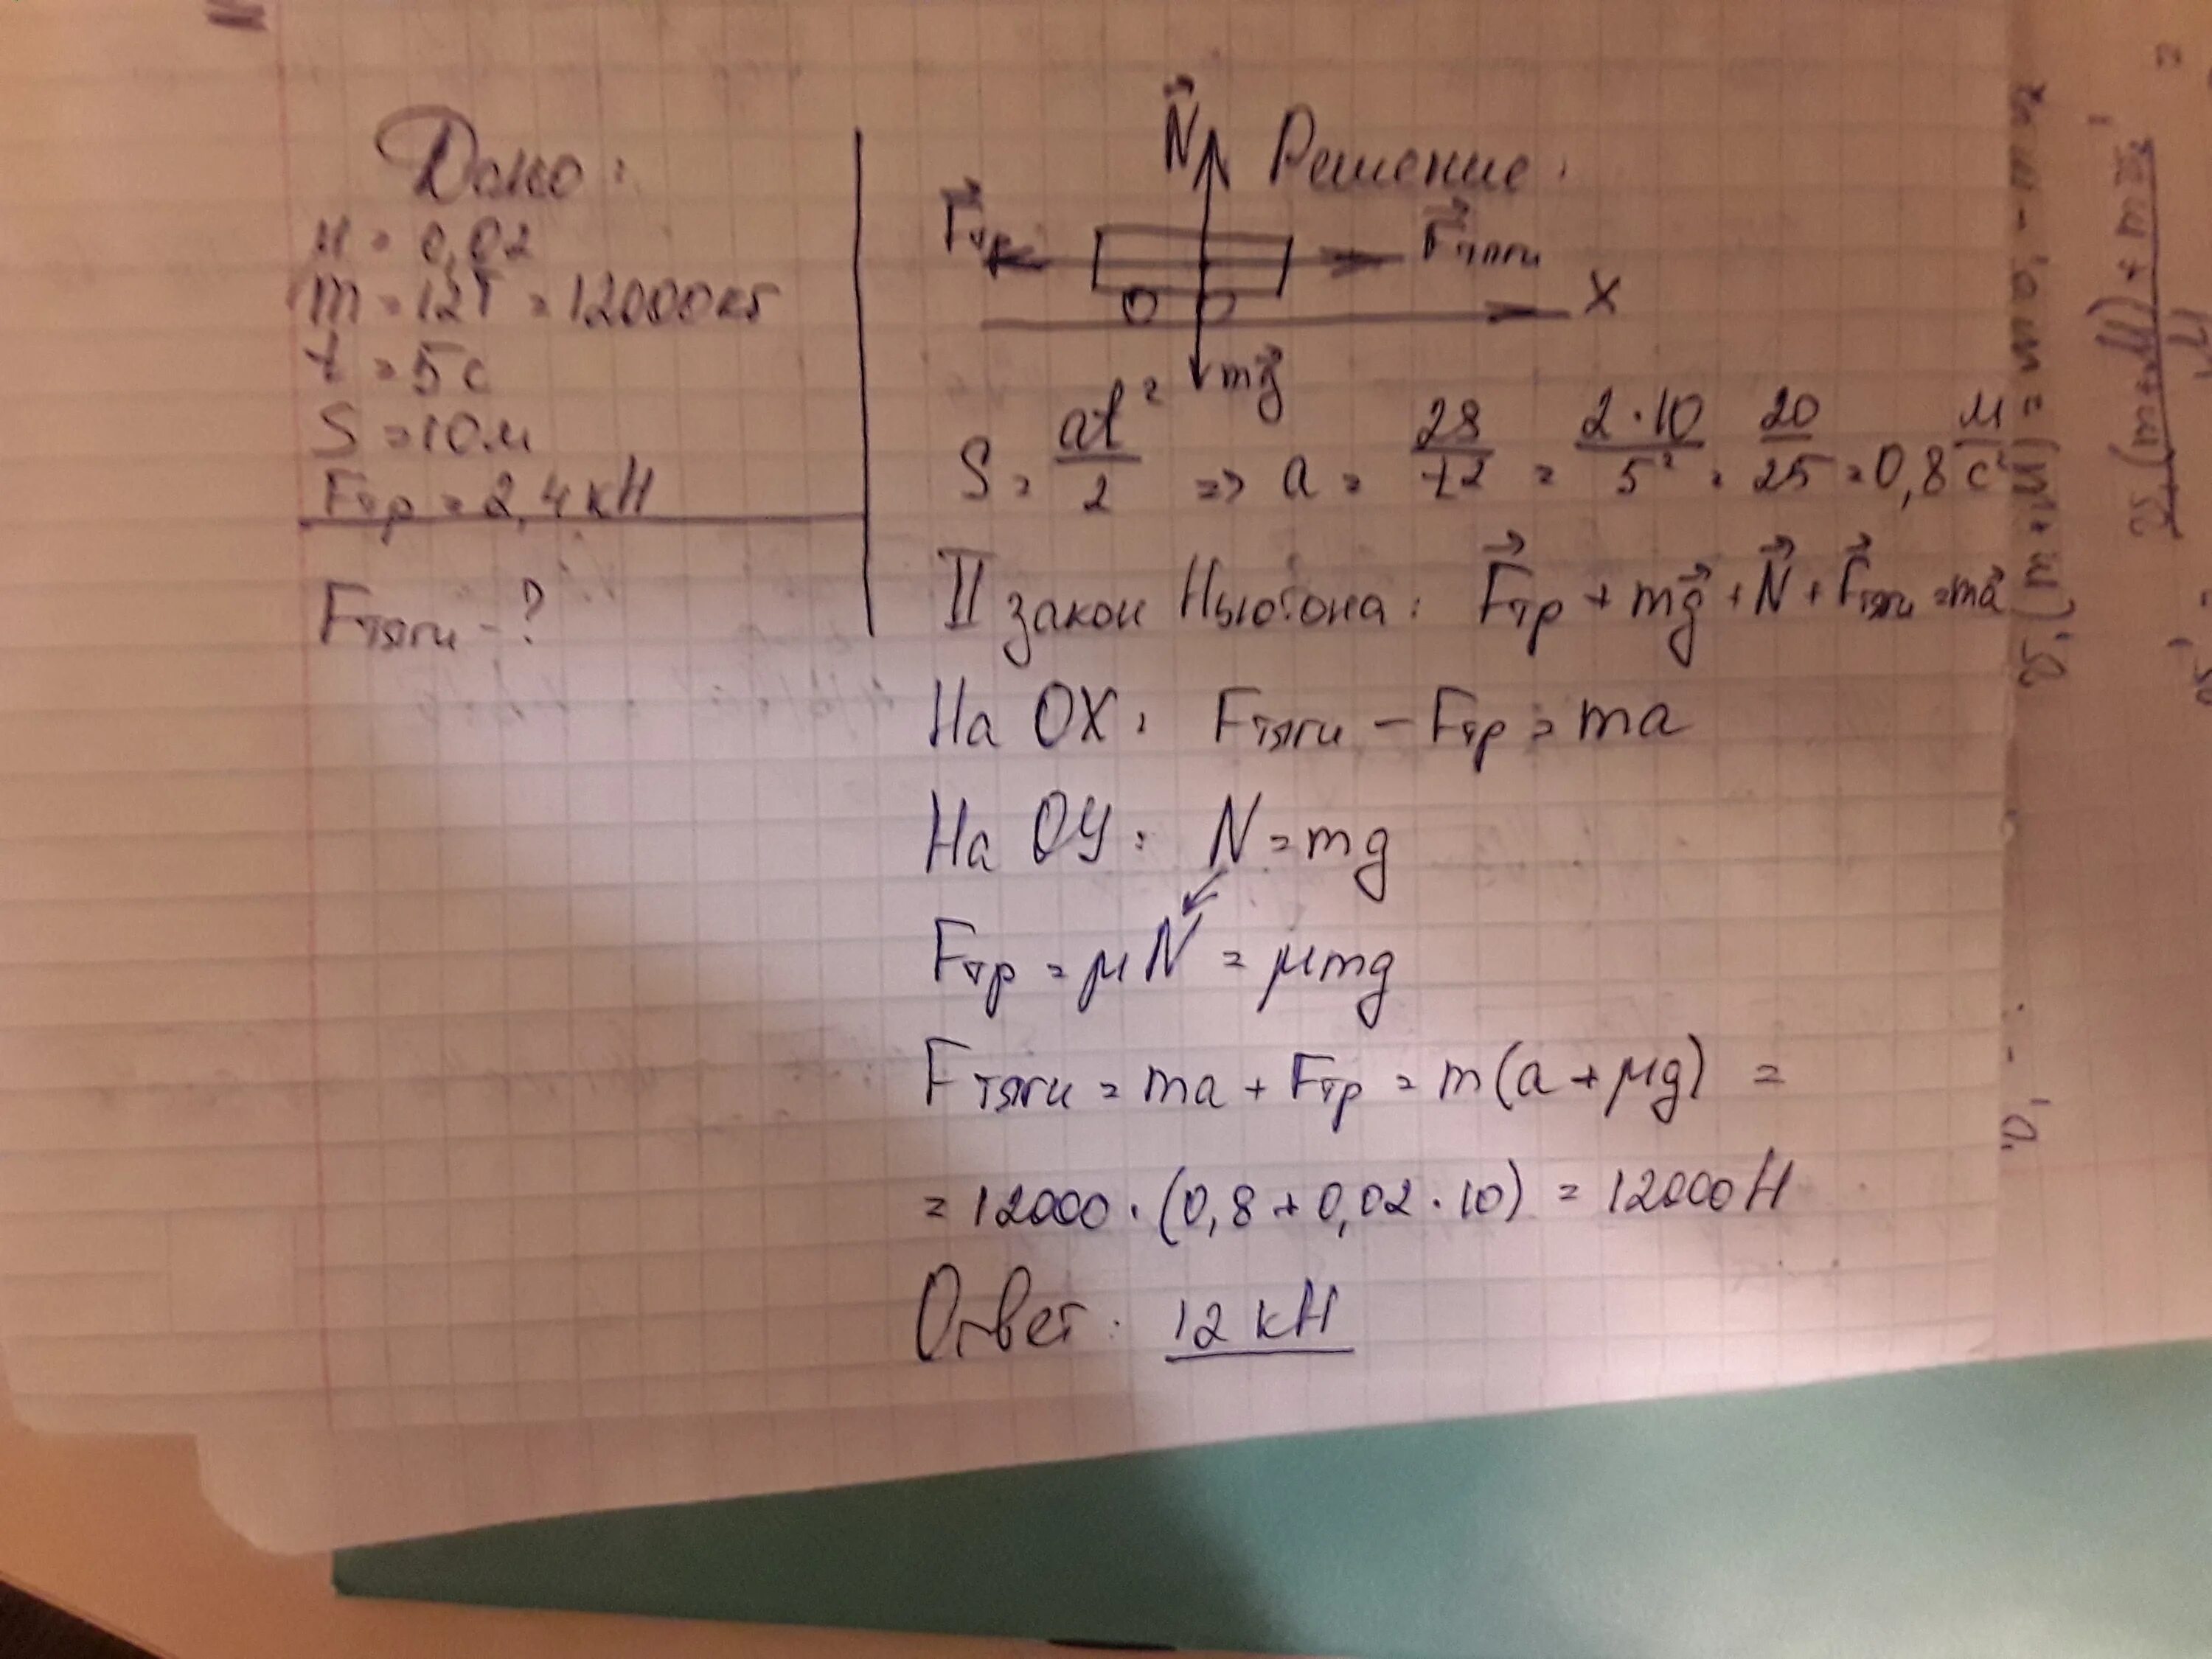 Дано:
μ = 0,02
m = 12т = 12000кг
t = 5с
S = 10м
Fтр = 2,4кН
Fтяги - ?
N Решение:
Fтр Fтяги
X
mg
S = at²/2 => a = 2S/t² = 2·10/5² = 20/25 = 0,8 м/с²
II закон Ньютона: Fтр + mg + N + Fтяги = ma
На OX: Fтяги - Fтр = ma
На ОУ: N = mg
Fтр = μN = μmg
Fтяги = ma + Fтр = m(a + μg) =
= 12000 · (0,8 + 0,02 · 10) = 12000Н
Ответ: 12 кН